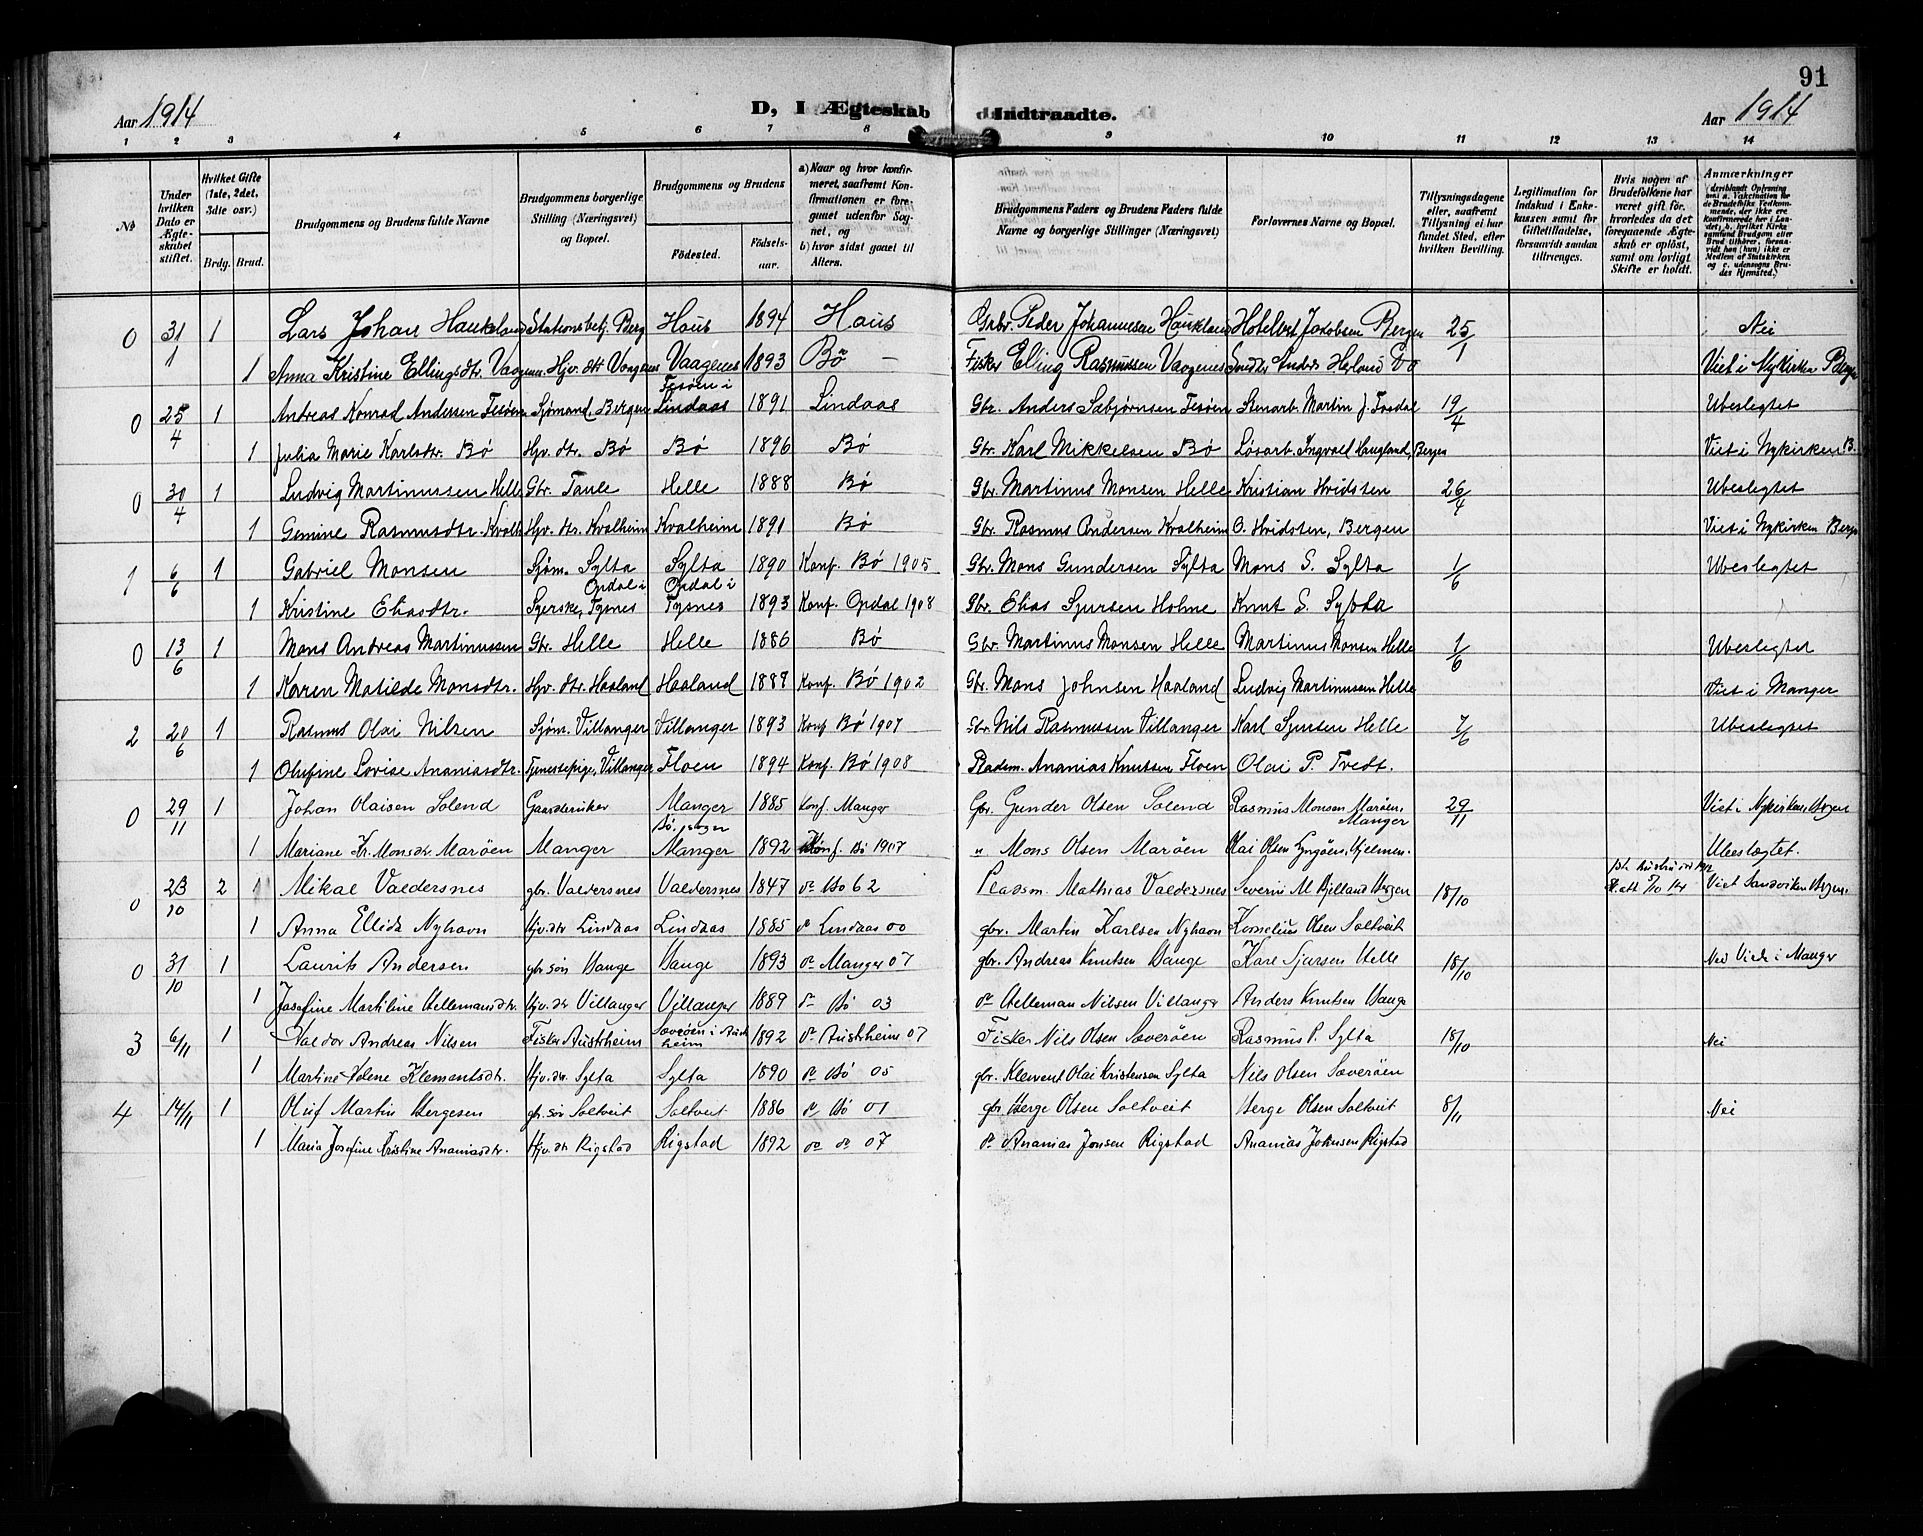 91
Aar 1914 D, I Ægteskab Indtraadte. Aar 1914
1 2 3 4 5 6 7 8 9 10 11 12 13 14
№ Under hvilken Dato er Ægteskabet stiftet. Hvilket Gifte (1ste, 2det, 3die osv.) Brdg. Brud. Brudgommens og Brudens fulde Navne Brudgommens borgerlige Stilling (Næringsvei) og Bopæl. Brudgommens og Brudens Fødested. Fødselsaar. a) Naar og hvor konfirmeret, saafremt Konfirmationen er foregaaet udenfor Sognet, og b) hvor sidst gaaet til Alters. Brudgommens Faders og Brudens Faders fulde Navne og borgerlige Stillinger (Næringsvei) Forlovernes Navne og Bopæl. Tillysningsdagene eller, saafremt Tillysning ei har fundet Sted, efter hvilken Bevilling. Legitimation for Indskud i Enkekassen samt for Giftetilladelse, forsaavidt saadan tiltrænges. Hvis nogen af Brudefolkene har været gift før, hvorledes da det foregaaende Ægteskab er opløst, samt om lovligt Skifte er holdt. Anmærkninger
0 31/1 1 Lars Johan Haukeland Stationsbetj. Berg Haus 1894 Haus Grbr. Peder Johannesen Haukland Hotelvert Jakobsen Bergen 25/1 Nei
1 Anna Kristine Ellingsdtr. Vaagenes Hjv. dtr Vaagenes Vaagenes 1893 Bø — Fisker Elling Rasmussen Vaagenes Snedker Anders Herland Do Viet i Nykirken Bergen
0 25/4 1 Andreas Konrad Andersen Fesøen Sjømand, Bergen Fesøen i Lindaas 1891 Lindaas Gbr. Anders Sæbjørnsen Fesøen Stenarb. Martin J. Fosdal 19/4 Ubeslegtet
1 Julia Marie Karlsdtr. Bø Hjv. dtr. Bø Bø 1896 Bø Gbr. Karl Mikkelsen Bø Løsarb. Ingvald Haugland, Bergen Viet i Nykirken B.
0 30/4 1 Ludvig Martinussen Helle Gbr. Taule Helle 1888 Bø Gbr. Martinus Monsen Helle Kristian Hvidsten 26/4 Ubeslegtet
1 Gemine Rasmusdtr. Kvalh Hjv. dtr. Kvalheim Kvalheim 1891 Bø Gbr. Rasmus Andersen Kvalheim O. Hvidsten, Bergen Viet i Nykirken Bergen
1 6/6 1 Gabriel Monsen Sjøm. Sylta Sylta 1890 Konf. Bø 1905 Gbr. Mons Gundersen Sylta Mons S. Sylta 1/6 Ubeslegtet
1 Kristine Eliasdtr. Syerske, Opdal i Tysnes Opdal i Tysnes 1893 Konf. Opdal 1908 Gbr. Elias Sjursen Holme Knut S. Sylta
0 13/6 1 Mons Andreas Martinussen Gbr. Helle Helle 1886 Bø Gbr. Martinus Monsen Helle Martinus Monsen Helle 1/6 Ubeslegtet
1 Karen Matilde Monsdtr. Hjv. dtr. Haaland Haaland 1889 Konf. Bø 1902 Gbr. Mons Johnsen Haaland Ludvig Martinussen Helle Viet i Manger
2 20/6 1 Rasmus Olai Nilsen Sjøm. Villanger Villanger 1893 Konf Bø 1907 Gbr. Nils Rasmussen Villanger Karl Sjursen Helle 7/6 Ubeslegtet
1 Olufine Lovise Ananiasdtr. Tjenestepige, Villanger Floen 1894 Konf. Bø 1908 Pladsm. Ananias Knutsen Floen Olai P. Tvedt.
0 29/11 1 Johan Olaisen Solend Gaardbruker Manger 1885 Konf. Manger Gbr. Gunder Olsen Solend Rasmus Monsen Marøen, Manger 29/11 Viet i Nykirken, Bergen
1 Mariane Kr. Monsdtr. Marøen Manger Manger 1892 Konf. Bø 1907 " Mons Olsen Marøen Olai Olsen Hjelmen. Ubeslægtet.
0 23/10 2 1 Mikal Valdersnes gbr. Valdersnes Valdersnes 1847 do Bø 62 Pladsm. Mathias Valdersnes Severin M Kjelland Bergen 18/10 Viet Sandviken Bergen.
1 Anna Ellida Nyhavn Hjv. dtr Lindaas Lindaas 1885 do Lindaas 00 gbr. Martin Karlsen Nyhavn Kornelius Olsen Soltveit
0 31/10 1 Laurits Andersen gbr søn Hauge Hauge 1893 do Manger 07 gbr. Andreas Knutsen Hauge Karl Sjursen Helle 18/10 Nei Viet i Manger
1 Josefine Martiline Hellemansdtr. Hjv. dtr Villanger Villanger 1889 do Bø 03 do Helleman Nilsen Villanger Anders Knutsen Hauge
3 6/11 1 Valdor Andreas Nilsen Fisker Austrheim Sæverøen i Austrheim 1892 do Austrheim 07 Fisker Nils Olsen Sæverøen Rasmus P. Sylta 18/10 Nei
1 Martine Helene Klementsdtr. Hjv. dtr. Sylta Sylta 1890 do Bø 05 gbr. Klement Olai Kristensen Sylta Nils Olsen Sæverøen
4 14/11 1 Oluf Martin Bergesen gbr. søn Soltveit Soltveit 1886 do Bø 01 gbr Berge Olsen Soltveit Berge Olsen Soltveit 8/11 Nei
1 Maria Josefine Kristine Ananiasdtr. Hjv. dtr Rigstad Rigstad 1892 do do 07 do Ananias Jonsen Rigstad Ananias Johnsen Rigstad